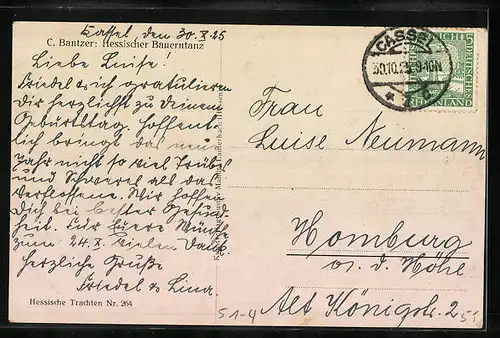 Kassel, den 30. X. 25
C. Bantzer: Hessischer Bauerntanz
Liebe Luise!
Friedel & ich gratulieren
Dir herzlichst zu Deinem
Geburtstag. Hoffent-
lich bringt das neue
Jahr nicht so viel Trübes
und Schweres als das
verflossene. Wir hoffen
Dich bei bester Gesund-
heit. Für Eure Wünsche
zum 24. X. vielen Dank.
Herzliche Grüße
Friedel & Lina.
Hessische Trachten Nr. 264
CASSEL
30.10.25. 9-10N
DEUTSCHES REICH
RHEINLAND
5
Frau
Luise Neumann
Homburg
v. d. Höhe
Alt Königstr. 2
51-4